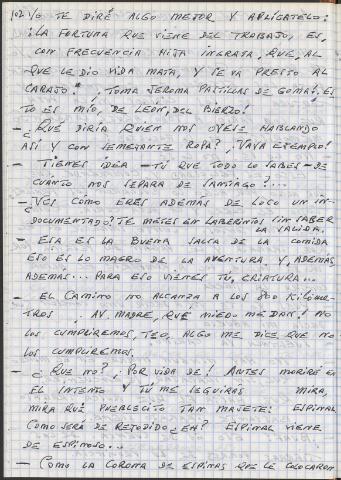 102 YO TE DIRÉ ALGO MEJOR Y APLÍCATELO:
¡LA FORTUNA QUE VIENE DEL TRABAJO, ES,
CON FRECUENCIA HIJA INGRATA, QUE, AL
QUE LE DIO VIDA MATA, Y SE VA PRESTO AL
CARAJO! ¡TOMA JEROMA PASTILLAS DE GOMA!, ¡ES
TO ES MÍO, DE LEÓN, DEL BIERZO!
— ¿QUÉ DIRÍA QUIÉN NOS OYESE HABLANDO
ASÍ Y CON SEMEJANTE ROPA? ¡VAYA EJEMPLO!
— TIENES IDEA — TÚ QUE TODO LO SABES — DE
CUÁNTO NOS SEPARA DE SANTIAGO?...
— ¿VES COMO ERES ADEMÁS DE LOCO UN IN-
DOCUMENTADO? TE METES EN LABERINTOS SIN SABER
LA SALIDA.
— ESA ES LA BUENA SALSA DE LA COMIDA
ESO ES LO MAGRO DE LA AVENTURA. Y, ADEMÁS
ADEMÁS... PARA ESO VIENES TÚ, CRIATURA...
— EL CAMINO NO ALCANZA A LOS 800 KILÓME-
TROS ¡AY MADRE, QUÉ MIEDO ME DAN! NO
LOS CUMPLIREMOS, TEO, ALGO ME DICE QUE NO
LOS CUMPLIREMOS.
— ¿QUE NO? ¡POR VIDA DE! ANTES MORIRÉ EN
EL INTENTO Y TÚ ME SEGUIRÁS MIRA,
MIRA QUÉ PUEBLECITO TAN MAJETE: ESPINAL
COMO SERÁ DE RETODIDO ¿EH? ESPINAL VIENE
DE ESPINOSO...
— COMO LA CORONA DE ESPINAS QUE LE COLOCARON